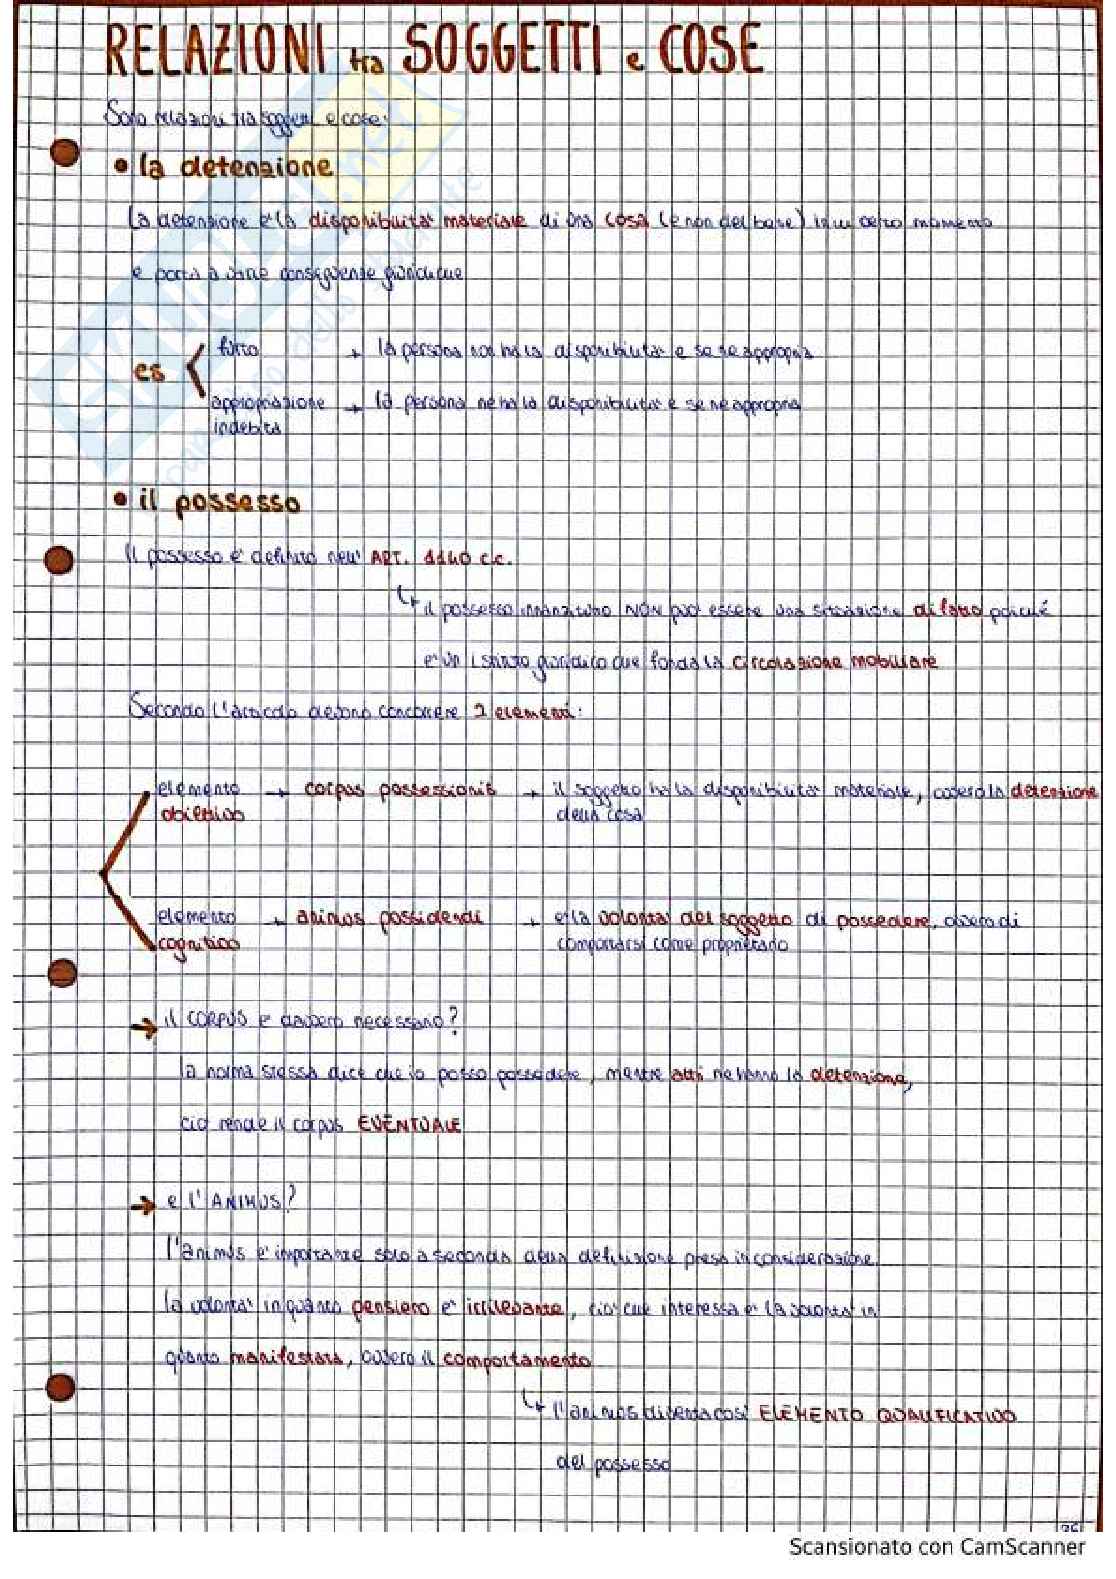 RELAZIONI tra SOGGETTI e COSE
Sono relazioni tra soggetti e cose:
• la detenzione
La detenzione è la disponibilità materiale di una cosa (e non del bene) in un certo momento
e porta a varie conseguenze giuridiche
es
furto → la persona non ha la disponibilità e se ne appropria
appropriazione → la persona ne ha la disponibilità e se ne appropria
indebita
• il possesso
Il possesso è definito nell' ART. 1140 c.c.
↳ il possesso innanzitutto NON può essere una situazione di fatto poiché
è un istituto giuridico che fonda la circolazione mobiliare
Secondo l'articolo devono concorrere 2 elementi:
elemento → corpus possessionis → il soggetto ha la disponibilità materiale, ovvero la detenzione
obiettivo della cosa
elemento → animus possidendi → è la volontà del soggetto di possedere, ovvero di
cognitivo comportarsi come proprietario
→ il CORPUS è davvero necessario?
la norma stessa dice che io posso possedere, mentre altri ne hanno la detenzione,
ciò rende il corpus EVENTUALE
→ e l'ANIMUS?
l'animus è importante solo a seconda della definizione presa in considerazione.
la volontà in quanto pensiero è irrilevante, ciò che interessa è la volontà in
quanto manifestata, ovvero il comportamento
↳ l'animus diventa così ELEMENTO QUALIFICATIVO
del possesso
Scansionato con CamScanner